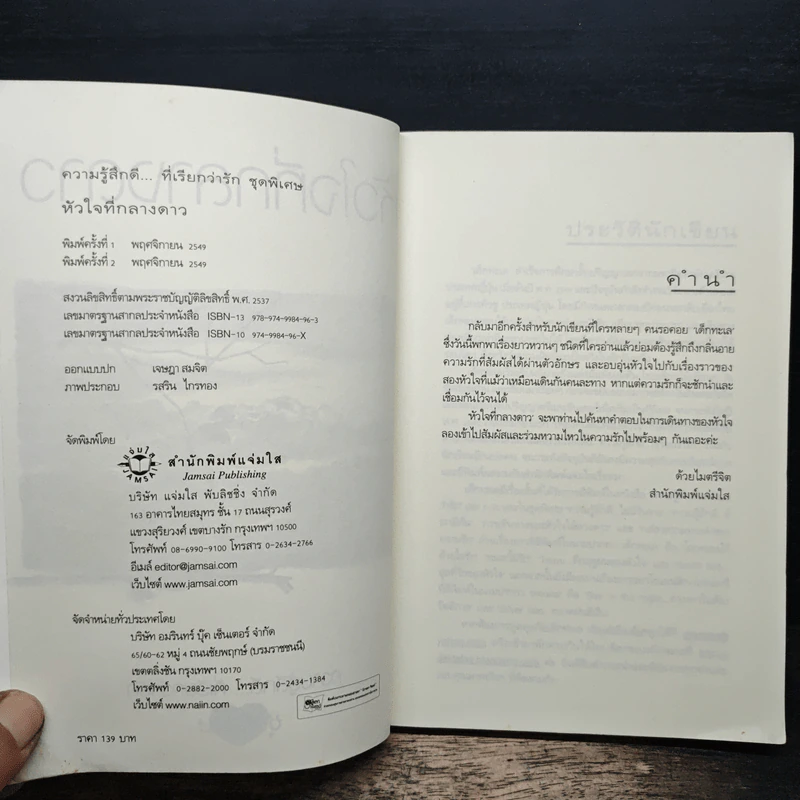 ความรู้สึกดี... ที่เรียกว่ารัก ชุดพิเศษ
หัวใจที่กลางดาว
พิมพ์ครั้งที่ 1 พฤศจิกายน 2549
พิมพ์ครั้งที่ 2 พฤศจิกายน 2549
สงวนลิขสิทธิ์ตามพระราชบัญญัติลิขสิทธิ์ พ.ศ. 2537
เลขมาตรฐานสากลประจำหนังสือ ISBN-13 978-974-9984-96-3
เลขมาตรฐานสากลประจำหนังสือ ISBN-10 974-9984-96-X
ออกแบบปก เจษฎา สมจิต
ภาพประกอบ รสริน ไกรทอง
จัดพิมพ์โดย
แจ่มใส
JAMSAI
สำนักพิมพ์แจ่มใส
Jamsai Publishing
บริษัท แจ่มใส พับลิชชิ่ง จำกัด
163 อาคารไทยสมุทร ชั้น 17 ถนนสุรวงศ์
แขวงสุริยวงศ์ เขตบางรัก กรุงเทพฯ 10500
โทรศัพท์ 08-6990-9100 โทรสาร 0-2634-2766
อีเมล์ editor@jamsai.com
เว็บไซต์ www.jamsai.com
จัดจำหน่ายทั่วประเทศโดย
บริษัท อมรินทร์ บุ๊ค เซ็นเตอร์ จำกัด
65/60-62 หมู่ 4 ถนนชัยพฤกษ์ (บรมราชชนนี)
เขตตลิ่งชัน กรุงเทพฯ 10170
โทรศัพท์ 0-2882-2000 โทรสาร 0-2434-1384
เว็บไซต์ www.naiin.com
ราคา 139 บาท
คำนำ
กลับมาอีกครั้งสำหรับนักเขียนที่ใครหลายๆ คนรอคอย 'เด็กทะเล'
ซึ่งวันนี้พกพาเรื่องยาวหวานๆ ชนิดที่ใครอ่านแล้วย่อมต้องรู้สึกถึงกลิ่นอาย
ความรักที่สัมผัสได้ผ่านตัวอักษร และอบอุ่นหัวใจไปกับเรื่องราวของ
สองหัวใจที่แม้ว่าเหมือนเดินกันคนละทาง หากแต่ความรักก็จะชักนำและ
เชื่อมกันไว้จนได้
'หัวใจที่กลางดาว' จะพาท่านไปค้นหาคำตอบในการเดินทางของหัวใจ
ลองเข้าไปสัมผัสและร่วมหวามไหวในความรักไปพร้อมๆ กันเถอะค่ะ
ด้วยไมตรีจิต
สำนักพิมพ์แจ่มใส